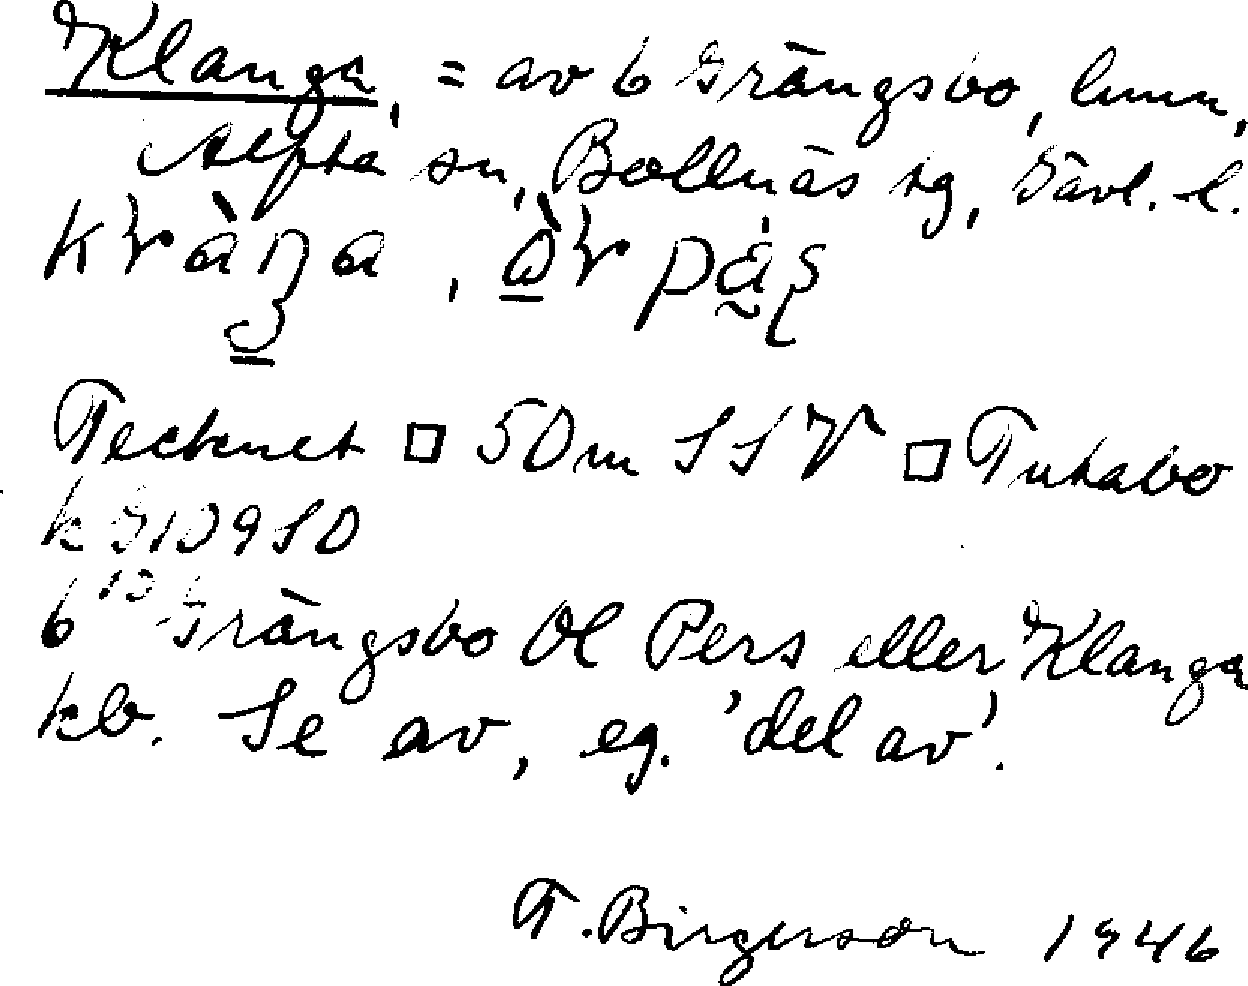 Klanga, = av 6 Grängsbo, hmn,
Alfta sn, Bollnäs tg, Gävl. l.
Tecknet □ 50m SSV □ Tutabo
k G1095D
6 Grängsbo Ol Pers eller Klanga
kb. Se av, eg. 'del av'.
T. Birgerson 1946